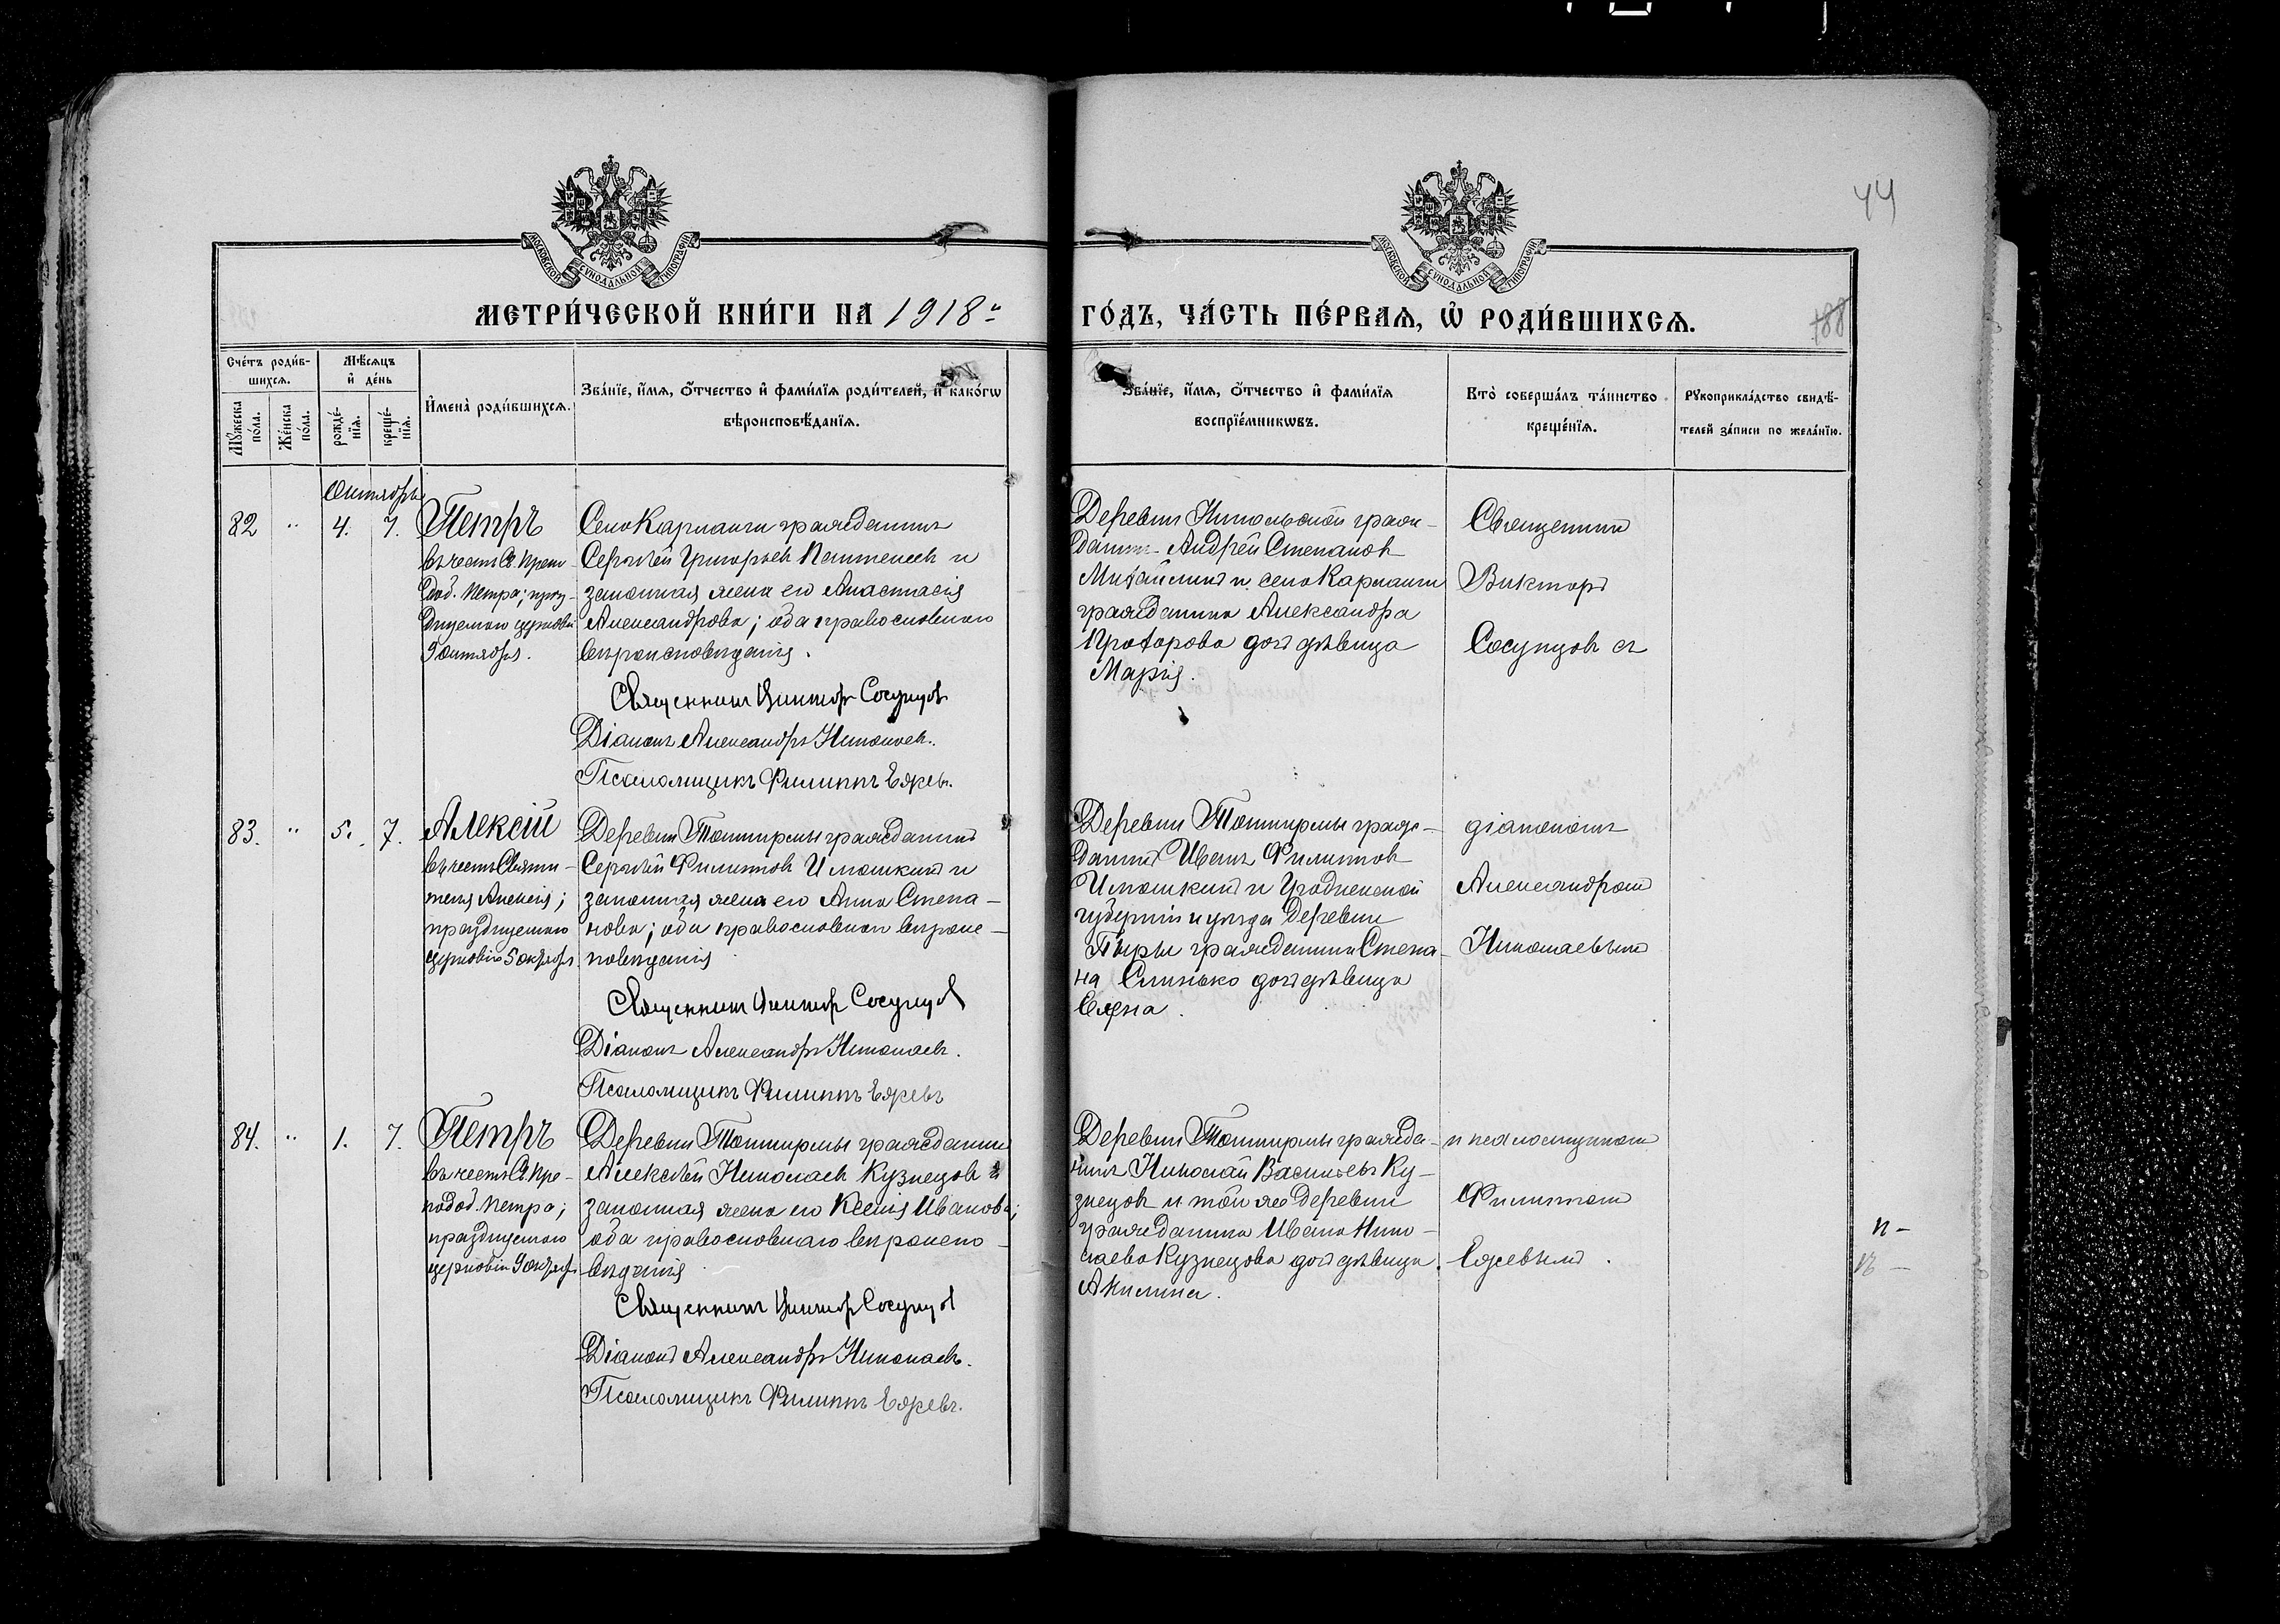 44
МОСКОВСКОЙ СѴНОДАЛЬНОЙ ТИПОГРАФІИ
МОСКОВСКОЙ СѴНОДАЛЬНОЙ ТИПОГРАФІИ
МЕТРИ́ЧЕСКОЙ КНИ́ГИ НА 1918й
ГО́ДЪ, ЧА́СТЬ ПЕ́РВАѦ, Ѡ҆ РОДИ́ВШИХСѦ.
188
Сче́тъ роди́в-
шихсѧ.
Мꙋ́жеска по́ла.
Же́нска по́ла.
Мѣ́сѧцъ
и҆ де́нь
рожде́-
нїѧ.
креще́-
нїѧ.
И҆мена̀ роди́вшихсѧ.
Зва́нїе, и҆́мѧ, ѻ҆́тчество и҆ фами́лїѧ роди́телей, и҆ како́гѡ
вѣроисповѣ́данїѧ.
Зва́нїе, и҆́мѧ, ѻ҆́тчество и҆ фами́лїѧ
воспрїе́мникѡвъ.
Кто̀ соверша́лъ та́инство
креще́нїѧ.
Рꙋкоприкла́дство свидѣ́-
телей за́писи по жела́нїю.
Октябрь
82 " 4. 7. Петръ
въ честь Св. Препо-
дод. Петра; празд-
днуемаго церковью
9 октября.
Село Кармалы гражданинъ
Сергѣй Григорьевъ и
законная жена его Анастасія
Александрова; оба православнаго
вѣроисповѣданія.
Священникъ Викторъ Сосунцовъ
Діаконъ Александръ Николаевъ.
Псаломщикъ Филиппъ Ежевъ.
Деревни Никольской граж-
данинъ Андрей Степановъ
Михайлинъ и село Кармалы
гражданина Александра
Прохорова дочь дѣвица
Марія.
Священник
Викторъ
Сосунцовъ съ
83. " 5. 7. Алексій
въ честь Святи-
теля Алексія;
празднуемаго
церковію 5 октября.
Деревни гражданинъ
Сергѣй Филипповъ и
законная жена его Анна Степа-
нова; оба православнаго вѣроис-
повѣданія
Священникъ Викторъ Сосунцовъ
Діаконъ Александръ Николаевъ.
Псаломщикъ Филиппъ Ежевъ
Деревни граж-
данинъ Иванъ Филипповъ
и Гродненской
губерніи и уѣзда деревни
гражданина Степа-
на дочь дѣвица
Елена.
діакономъ
Александромъ
Николаевымъ
84. " 1. 7. Петръ
въ честь Св. Пре-
подод. Петра;
празднуемаго
церковію 9 октября
Деревни гражданинъ
Алексѣй Николаевъ Кузнецовъ и
законная жена его Ксенія Иванова;
оба православнаго вѣроиспо-
вѣданія
Священникъ Викторъ Сосунцовъ
Діаконъ Александръ Николаевъ.
Псаломщикъ Филиппъ Ежевъ.
Деревни гражда-
нинъ Николай Васильевъ Ку-
знецовъ и той же деревни
гражданина Ивана Нико-
лаева Кузнецова дочь дѣвица
Акилина.
и псаломщикомъ
Филиппомъ
Ежевымъ.